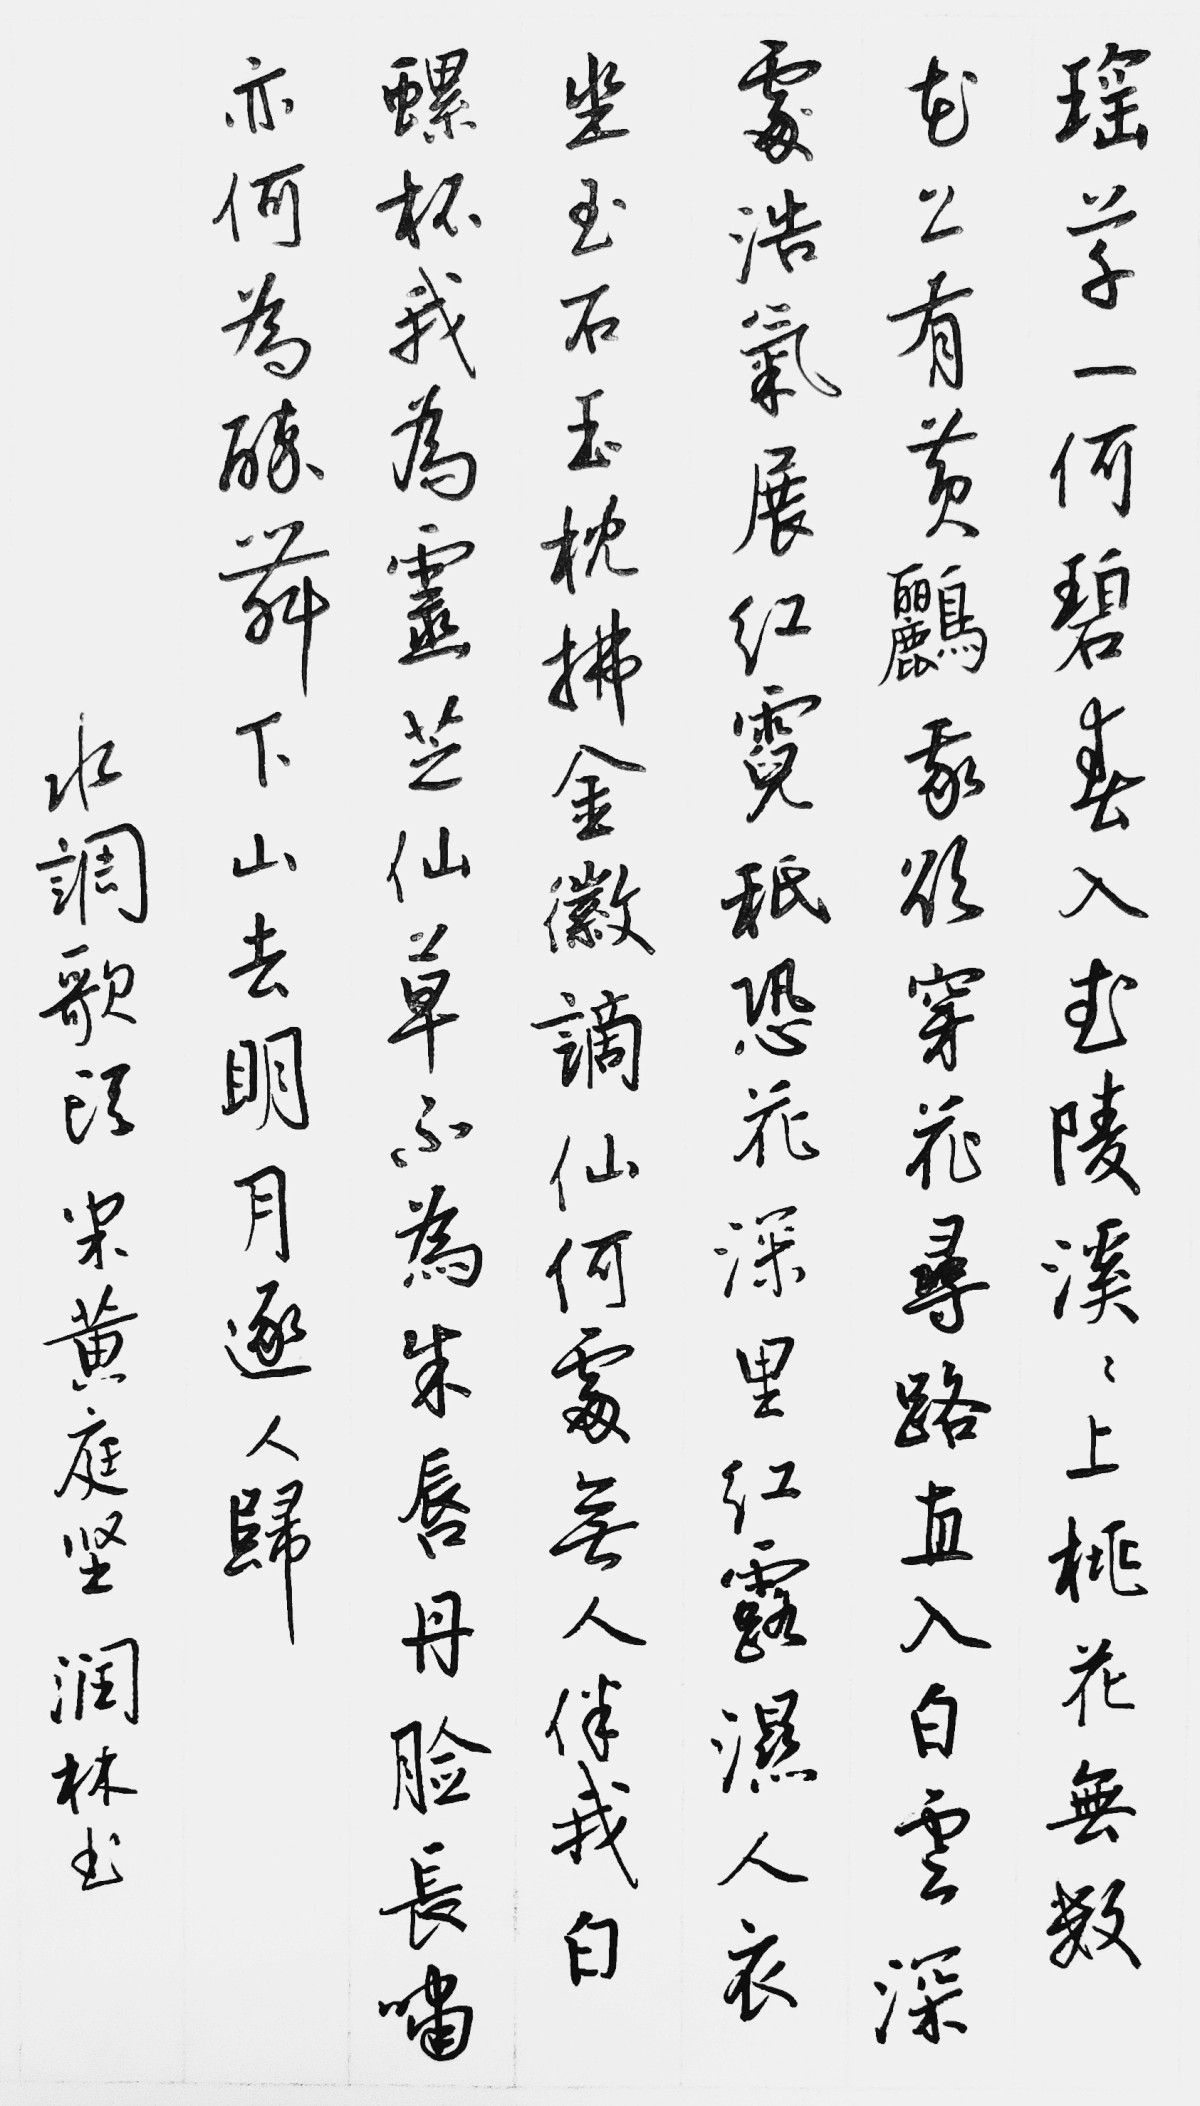 瑤草一何碧春入武陵溪〻上桃花無数
花上有黄鸝我欲穿花尋路直入白雲深
處浩氣展红霓秖恐花深里红露濕人衣
坐玉石玉枕拂金徽謫仙何處無人伴我白
螺杯我為靈芝仙草不為朱唇丹脸長嘯
亦何為醉舞下山去明月逐人歸
水調歌頭 宋黄庭坚 润林书